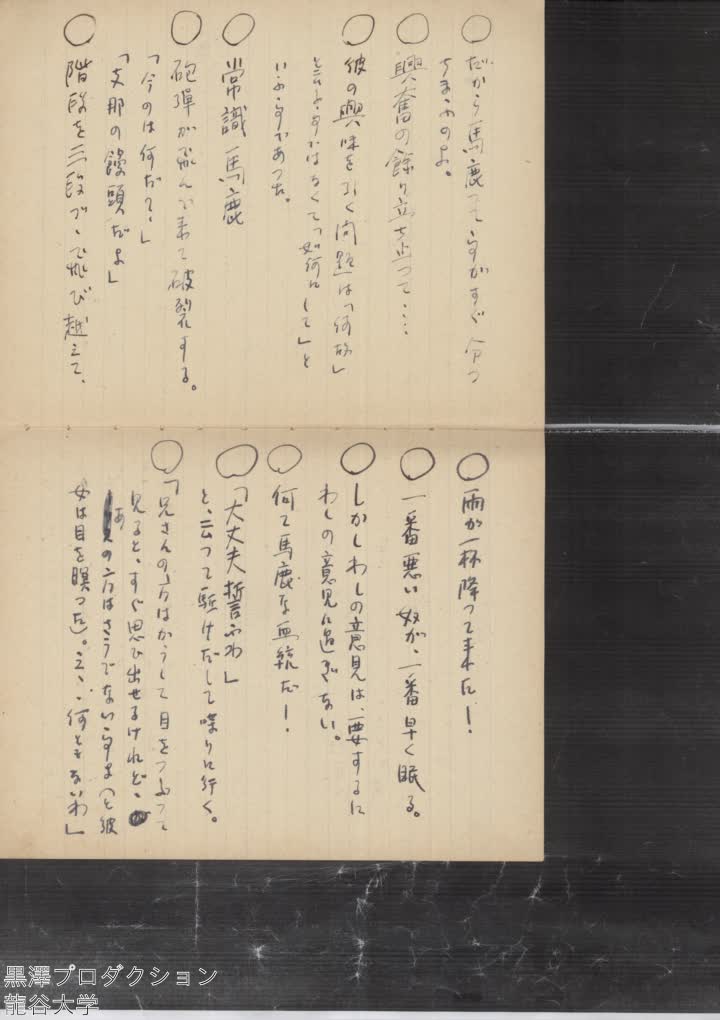 ○ だから馬鹿って事がすぐ分つ
ちまふのよ。
○ 興奮の餘り立ち止つて・・・
○ 彼の興味を引く問題は「何故」
と云ふ事ではなくて「如何にして」と
いふ事であつた。
○ 常識馬鹿
○ 砲彈が飛んで来て破裂する。
「今のは何だ?」
「支那の饅頭だよ」
○ 階段を三段づゝ飛び越えて、
○ 雨が一杯降つて来た!
○ 一番悪い奴が、一番早く眠る。
○ しかしわしの意見は、要するに
わしの意見に過ぎない。
○ 何て馬鹿な血統だ!
○ 「大丈夫誓ふわ」
と、云つて駈けだして喋りに行く。
○ 「兄さんの方はかうして目をつぶつて
見ると、すぐ思ひ出せるけれど、
あの方はさうでない事よ(と彼
女は目を瞑つた)。えゝ、何ともないわ」
黒澤プロダクション
龍谷大学